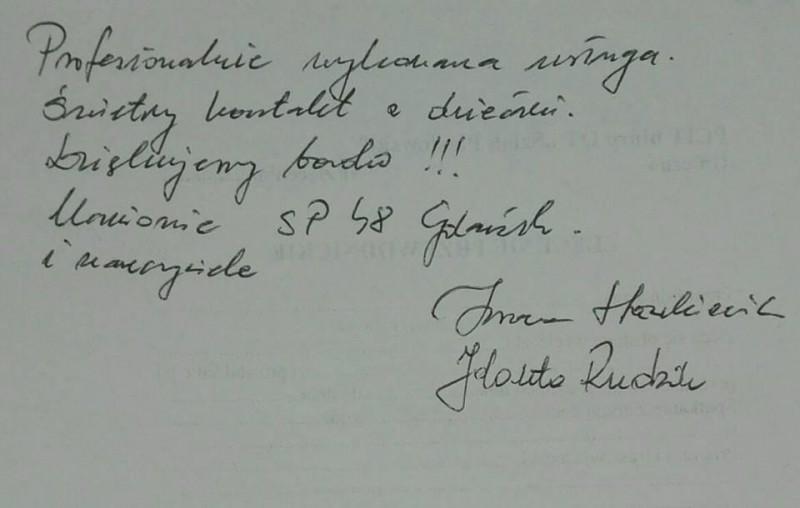 Profesjonalnie wykonana usługa.
Świetny kontakt z dziećmi.
Dziękujemy bardzo !!!
Uczniowie SP 48 Gdańsk.
i nauczyciele
Iwona
Jolanta Rudzik